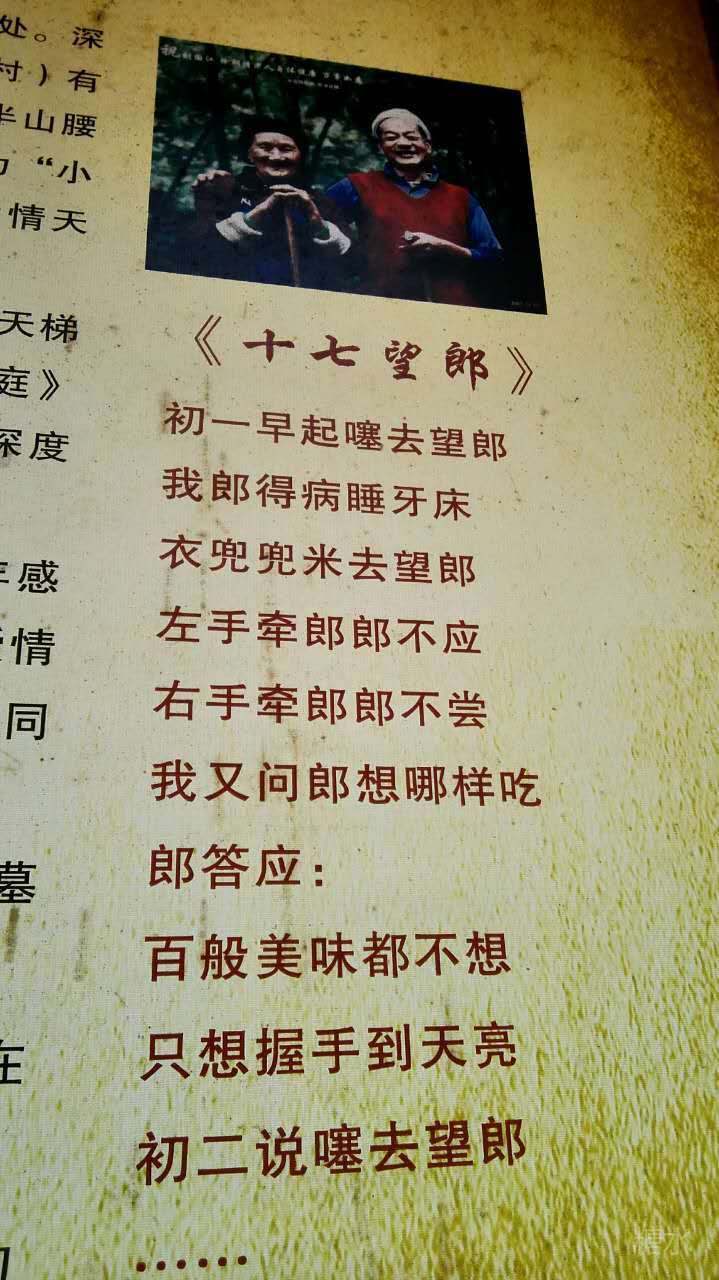 处。深
村）有
半山腰
“小
情天
天梯
庭》
深度
感
情
同
墓
在
《十七望郎》
初一早起噻去望郎
我郎得病睡牙床
衣兜兜米去望郎
左手牵郎郎不应
右手牵郎郎不尝
我又问郎想哪样吃
郎答应：
百般美味都不想
只想握手到天亮
初二说噻去望郎
……
糖水